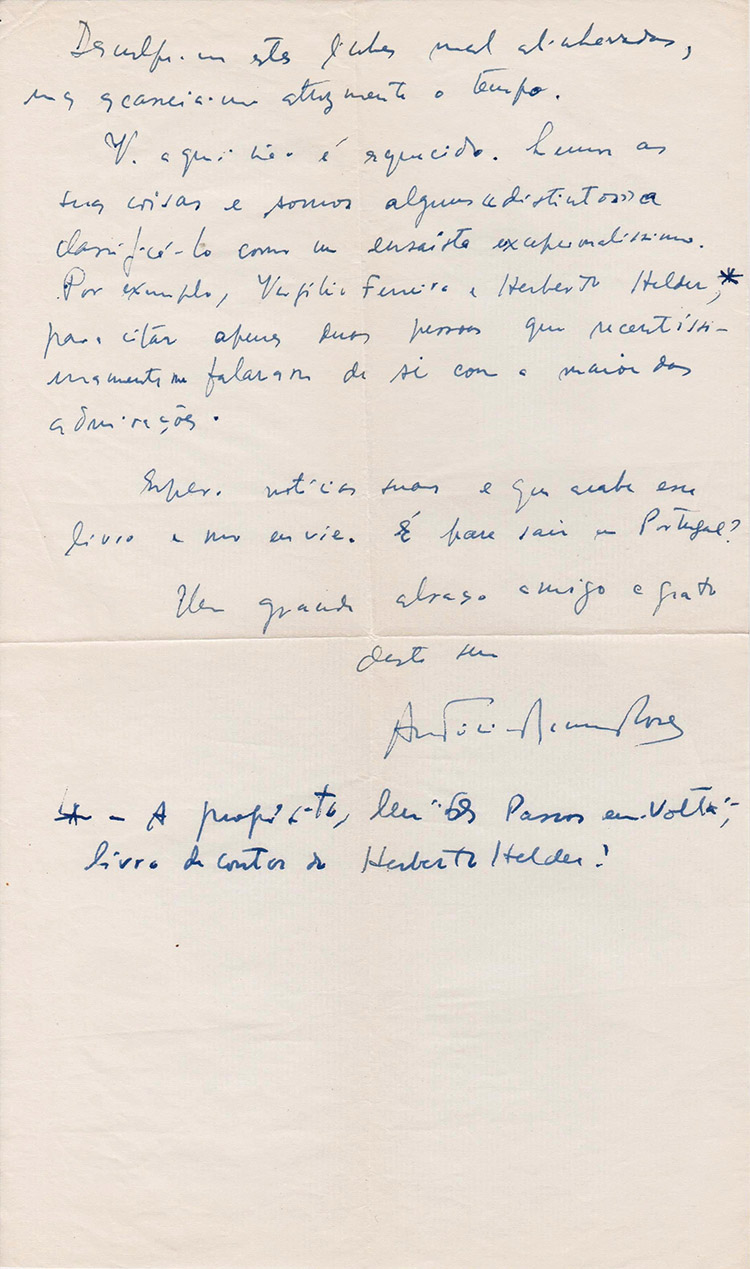 Desculpe-me estas linhas mal alinhavadas,
mas escasseia-me atrozmente o tempo.
V. aqui não é esquecido. Lemos as
suas coisas e somos alguns "distintos" a
classificá-lo como um ensaísta excepcionalíssimo.
Por exemplo, Vergílio Ferreira e Herberto Helder,*
para citar apenas duas pessoas que recentíssi-
mamente me falaram de si com a maior das
admirações.
Espero notícias suas e que acabe esse
livro e mo envie. É para sair em Portugal?
Um grande abraço amigo e grato
deste seu
António Ramos Rosa
* - A propósito, leu "Os Passos em Volta",
livro de contos do Herberto Helder?